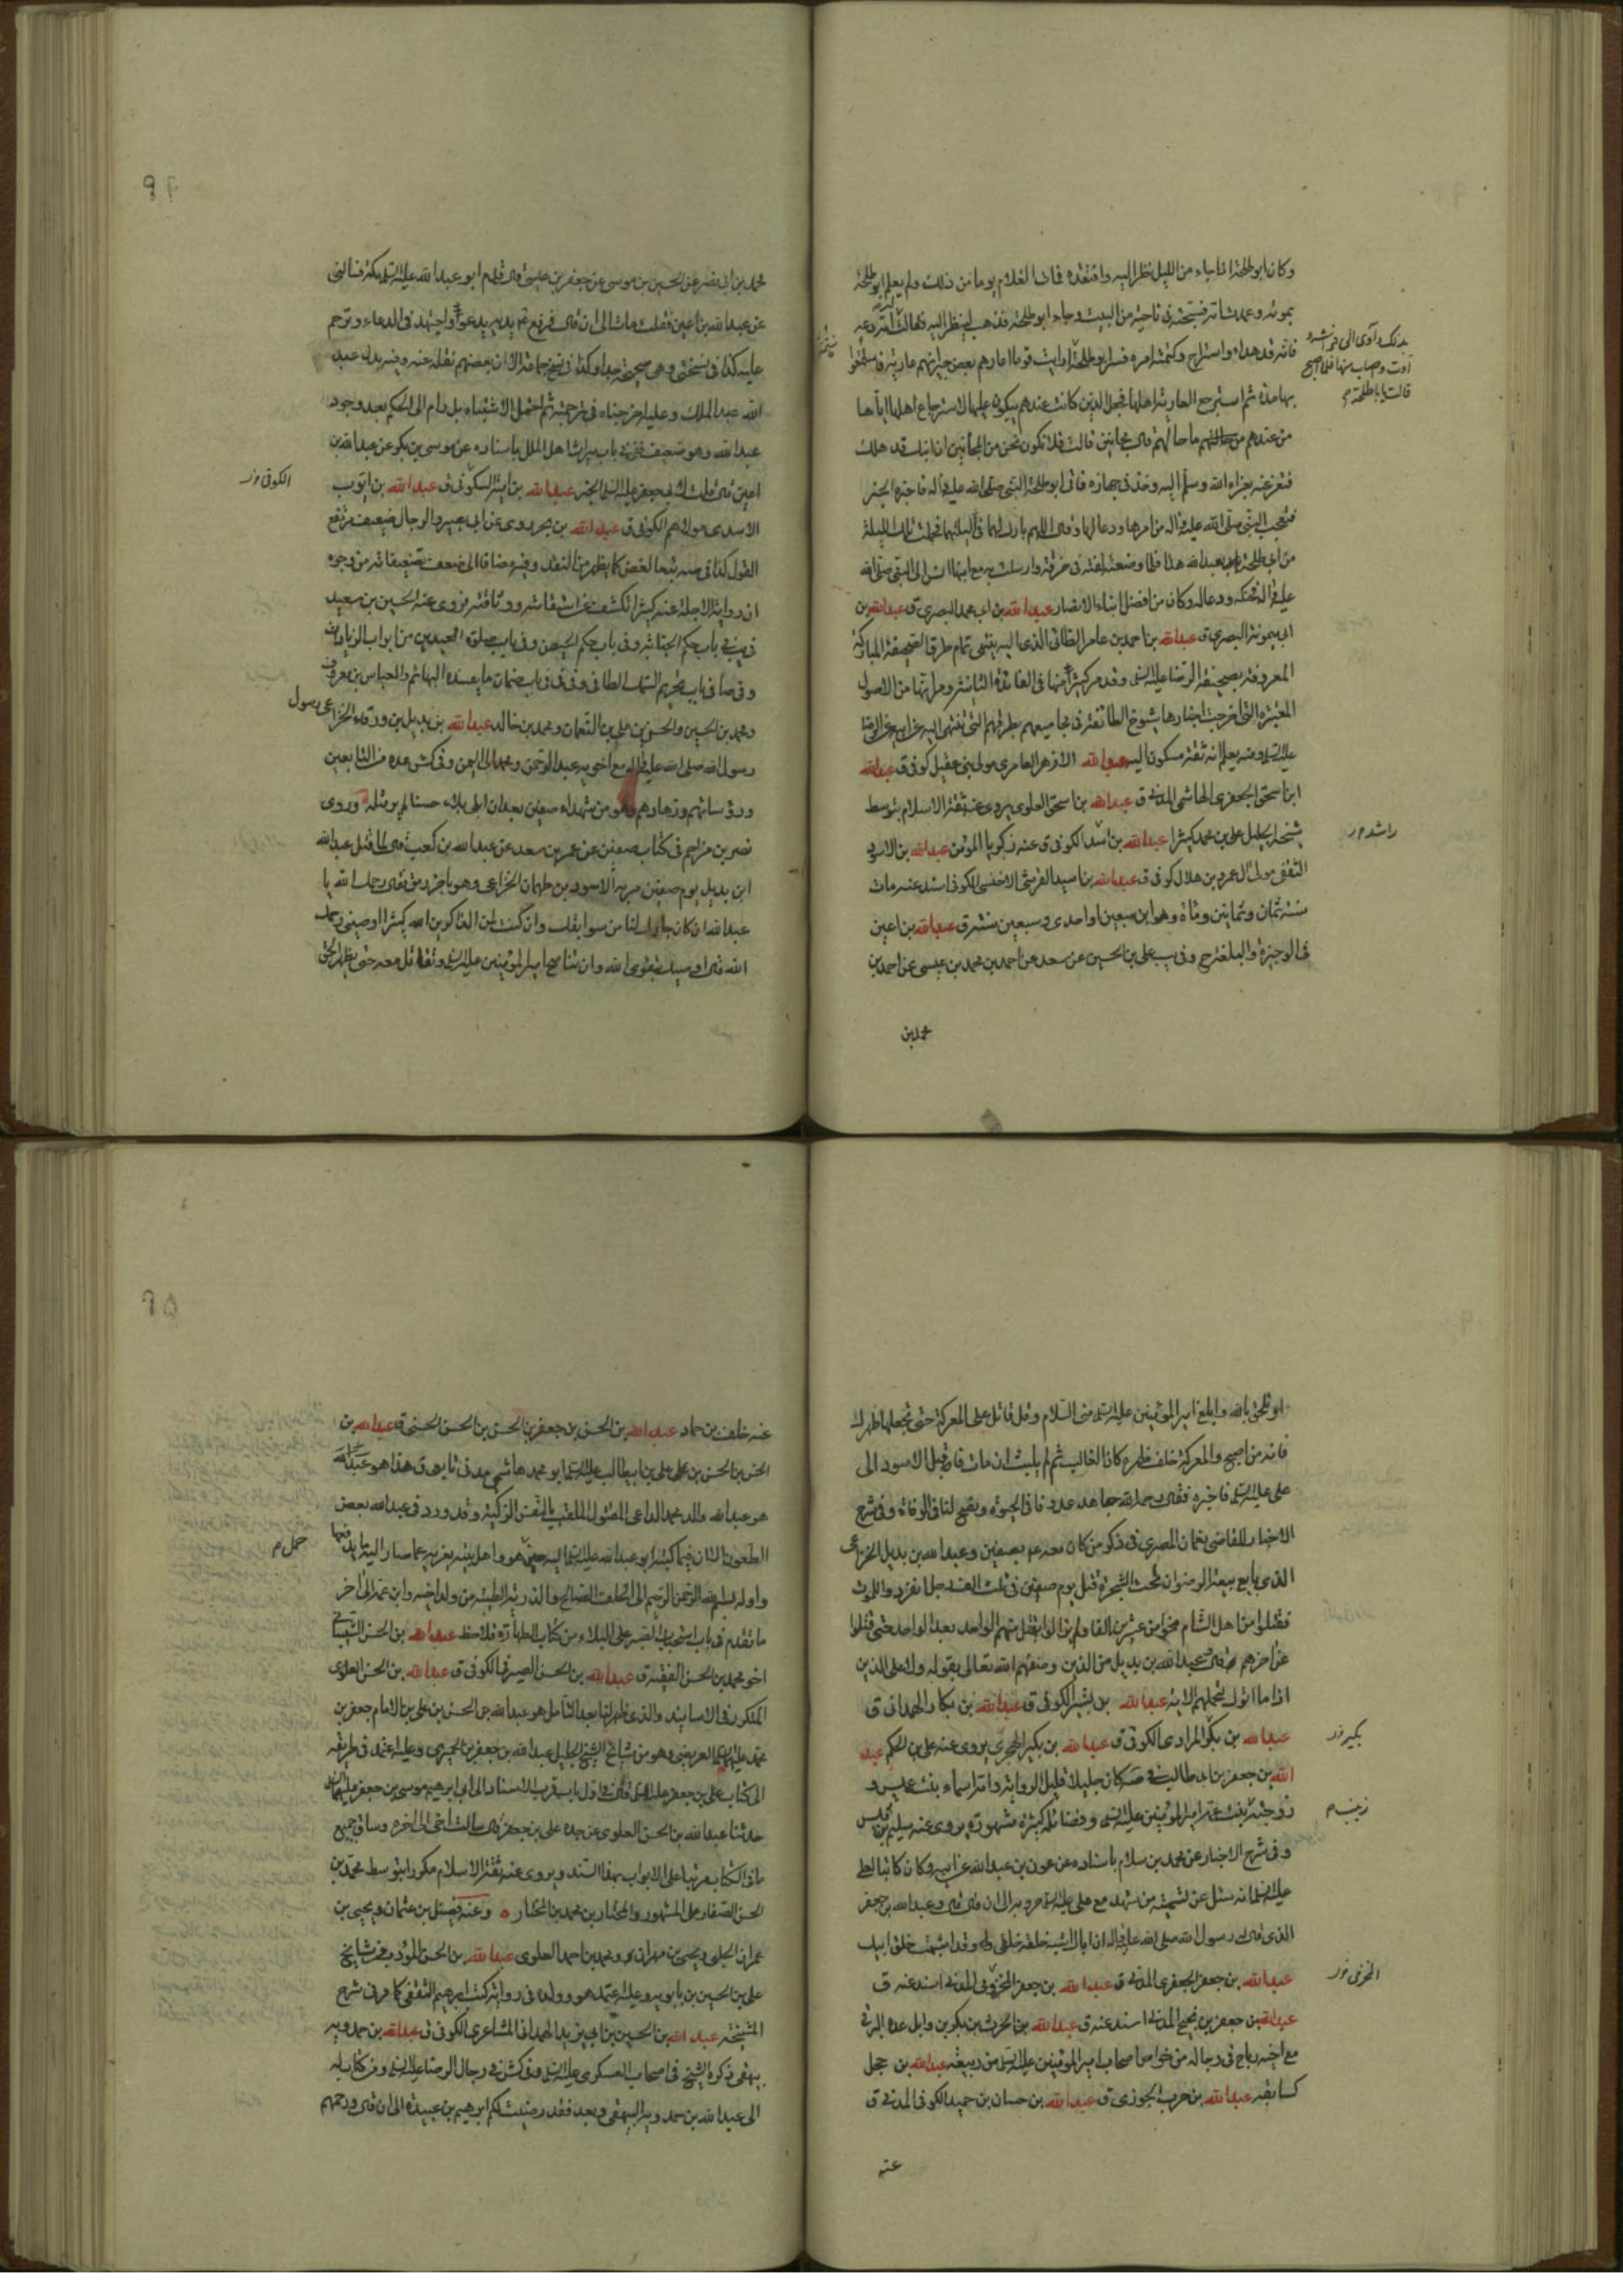 وكان ابو طلحة اذا جاء من الليل نظر اليه وافتقده فمات الغلام يوما من ذلك ولم يعلم ابو طلحة
بموته وعمدت امه فسجته في ناحية من البيت وجاء ابو طلحة فذهب لينظر اليه فقالت امه دعه
فانه قد هداء واستراح وكتمته امره
بذلك وآوى الى فراشه
قالت يا ابا طلحة
بها مدة ثم استرجع العارية اهلها فجعل الذين كانت عندهم يبكون عليها لاسترجاع اهلها اياها
من عندهم ما حالهم قال مجانين قالت فلا نكون نحن من المجانين ان ابنك قد هلك
فتعز عنه بعزاء الله وسلم اليه وخذ في جهازه فاتى ابو طلحة النبي صلى الله عليه واله فاخبره الخبر
فتعجب النبي صلى الله عليه واله من امرها ودعا لها وقال اللهم بارك لهما في ليلتهما فحملت تلك الليلة
من ابي طلحة بعبد الله هذا فلما وضعته لفته في خرقة وارسلت به مع ابنها انس الى النبي صلى الله
عليه واله فحنكه ودعا له وكان من افضل ابناء الانصار عبد الله بن ابي محمد البصري ق عبد الله بن
ابي ميمونة البصري ق عبد الله بن احمد بن عامر الطائي الذي اليه ينتهي تمام طرق الصحيفة المباركة
المعروفة بصحيفة الرضا عليه السلام وقد مر كثير منها في الفائدة الثانية وحالها من الاصول
المعتبرة التي اخرجت اخبارها شيوخ الطائفة في مجاميعهم بطرقهم التي تنتهي اليه عن ابيه عن الرضا
عليه السلام ومنه يعلم انه ثقة مسكون اليه عبد الله الازهر العامري مولى بني عقيل كوفي ق عبد الله
ابن اسحق الجعفري الهاشمي المدني ق عبد الله بن اسحق العلوي يروي عنه ثقة الاسلام بتوسط
شيخه الجليل علي بن محمد كثيرا عبد الله بن اسد الكوفي ق عنه زكريا المؤمن عبد الله بن الاسود
راشد
الثقفي مولى آل عمرو بن هلال كوفي ق عبد الله بن اسيد القرشي الاخنسي الكوفي اسند عنه مات
سنة ثمان وثمانين ومائة وهو ابن سبعين او احدى وسبعين سنة ق عبد الله بن اعين
في الوجيزة والبلغة ح وفي يب علي بن الحسين عن سعد عن احمد بن محمد بن عيسى عن احمد بن
محمد بن
محمد بن ابي نصر عن الحسين بن موسى عن جعفر بن عيسى قال قدم ابو عبد الله عليه السلام مكة فسالني
عن عبد الله بن اعين فقلت مات الى ان قال فرفع يديه يدعو واجتهد في الدعاء وترحم
عليه كذا في نسختي وهي صحيحة جدا وكذا في نسخ جماعة الا ان بعضهم نقله عنه وفيه بدل عبد
الله عبد الملك وعليه اخرجناه في ترجمته ثم احتمل الاشتباه بل رام الى الحكم بعد وجود
عبد الله وهو ضعيف ففي يب في باب ميراث اهل الملل باسناده عن موسى بن بكر عن عبد الله بن
اعين قال قلت لابي جعفر عليه السلام الخبر عبد الله بن امية السكوني ق عبد الله بن ايوب
الكوفي
الاسدي مولاهم الكوفي ق عبد الله بن بحر روى عن ابي بصير والرجال ضعيف مرتفع
القول كذا في صه تبعا لغض كما يظهر من النقد وفيه مضافا الى ضعف تضعيفاته من وجوه
ان رواية الاجلة عنه كثيرا تكشف عن استقامته ووثاقته يروي عنه الحسين بن سعيد
في يب في باب حكم الجنابة وفي باب حكم الحيض وفي باب صلوة العيدين من ابواب الزيادات
وفي صا في باب تحريم السمك الطافي وفي في في باب ضمان ما يفسده البهائم والعباس بن معروف
ومحمد بن الحسين والحسن بن علي بن النعمان ومحمد بن خالد عبد الله بن بديل بن ورقاء الخزاعي رسول
رسول الله صلى الله عليه واله مع اخويه عبد الرحمن ومحمد الى اليمن وفي كش عده من التابعين
ورؤسائهم وزهادهم وهو من شهداء صفين بعد ان ابلى بلاء حسنا لم ير مثله وروى
نصر بن مزاحم في كتاب صفين عن عمر بن سعد عن عبد الله بن كعب قال لما قتل عبد الله
ابن بديل يوم صفين مر به الاسود بن طهمان الخزاعي وهو باخر رمق فقال رحمك الله يا
عبد الله ان كان جارك لنا من سوابقك وان كنت لمن الذاكرين الله كثيرا اوصني رحمك
الله قال اوصيك بتقوى الله وان تناصح امير المؤمنين عليه السلام وتقاتل معه حتى يظهر الحق
او تلحق بالله وابلغ امير المؤمنين عليه السلام مني السلام وقل قاتل على المعركة حتى تجعلها ظهرك
فانه من اصبح والمعركة خلف ظهره كان الغالب ثم لم يلبث ان مات فاقبل الاسود الى
علي عليه السلام فاخبره فقال رحمه الله جاهد عدونا في الحيوة ونصح لنا في الوفاة وفي شرح
الاخبار للقاضي نعمان المصري في ذكر من كان معه ع بصفين وعبد الله بن بديل الخزاعي
الذي بايع بيعة الرضوان تحت الشجرة قتل يوم صفين
فقتلوا من اهل الشام نحوا من عشرين الفا ولم يزالوا يقتل منهم الواحد بعد الواحد حتى قتلوا
عن اخرهم عبد الله بن بديل من الذين وصفهم الله تعالى بقوله ولا على الذين
اذا ما اتوك لتحملهم الاية عبد الله بن بشير الكوفي ق عبد الله بن بكار الهمداني ق
عبد الله بن بكر المرادي الكوفي ق عبد الله بن بكير الهجري يروي عنه علي بن الحكم عبد
بكير
الله بن جعفر بن ابي طالب في صه كان جليلا قليل الرواية وامه اسماء بنت عميس و
زوجته بنت عمه امير المؤمنين عليه السلام وفضائله كثيرة مشهورة يروي عنه سليم بن قيس
زينب م
وفي شرح الاخبار عن محمد بن سلام باسناده عن عون بن عبد الله عن ابيه وكان كاتبا لعلي
عليه السلام انه سئل عن تسمية من شهد مع علي عليه السلام حروبه الى ان قال وعبد الله بن جعفر
الذي قال رسول الله صلى الله عليه واله
عبد الله بن جعفر الجعفري المدني ق عبد الله بن جعفر المخزومي المدني اسند عنه ق
المخرمي
عبد الله بن جعفر بن نجيح المدني اسند عنه ق عبد الله بن الحرث بن بكر بن وايل عده البرقي
مع اخيه رباح في رجاله من خواص اصحاب امير المؤمنين عليه السلام من ربيعة عبد الله بن حجل
كسابقه عبد الله بن حرب الجوزي ق عبد الله بن حسان بن حميد الكوفي المدني ق
عنه
عنه خلف بن حماد عبد الله بن الحسن بن جعفر بن الحسن بن الحسن الحسني ق عبد الله بن
الحسن بن الحسن بن علي بن ابي طالب عليه السلام ابو محمد هاشمي مدني تابعي ق هذا هو عبد الله
هو عبد الله والد محمد الداعي المقتول الملقب بالنفس الزكية وقد ورد في عبد الله بعض
الطعون الا ان فيما كتبه ابو عبد الله عليه السلام اليه حين هو واهل بيته يعزيه عما صار اليه
حمل م
واوله بسم الله الرحمن الرحيم الى الخلف الصالح والذرية الطيبة من ولد اخيه وابن عمه الى اخر
ما تقدم في باب استحباب الصبر على البلاء من كتاب الطهارة فلاحظ عبد الله بن الحسن الشيباني
اخو محمد بن الحسن الفقيه ق عبد الله بن الحسن الصيرفي الكوفي ق عبد الله بن الحسن العلوي
المتكرر في الاسانيد والذي ظهر لنا بعد التامل هو عبد الله بن الحسن بن علي بن الامام جعفر بن
محمد عليهما السلام العريضي وهو من مشايخ الشيخ الجليل عبد الله بن جعفر الحميري وعليه اعتمد في طريقه
الى كتاب علي بن جعفر عليه السلام قال في اول باب قرب الاسناد الى ابي ابراهيم موسى بن جعفر عليهما السلام
حدثنا عبد الله بن الحسن العلوي عن جده علي بن جعفر قال سالت اخي الى اخره وساق جميع
ما في الكتاب مرتبا على الابواب بهذا السند ويروي عنه ثقة الاسلام مكررا بتوسط محمد بن
الحسن الصفار على المشهور والمختار بن محمد بن المختار وعنه فضيل بن عثمان ويحيى بن
عمران الحلبي ويحيى بن مهران ومحمد بن احمد العلوي عبد الله بن الحسن المؤدب من مشايخ
علي بن الحسين بن بابويه وعليه اعتمد هو وولده في رواية كتب ابراهيم الثقفي كما مر في شرح
المشيخة عبد الله بن الحسين بن ابي يزيد الهمداني المشاعري الكوفي ق عبد الله بن حمدويه
بيهقي ذكره الشيخ في اصحاب العسكري عليه السلام وفي كش في رجال الرضا عليه السلام ومن كتاب له
الى عبد الله بن حمدويه البيهقي وبعد فقد رضيت لكم ابراهيم بن عبدة الى ان قال ورحمهم